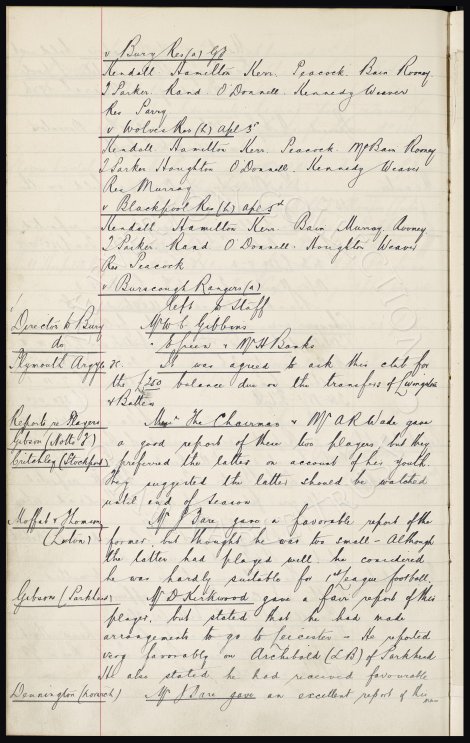 v Bury Res (a) GF
Kendall. Hamilton Kerr. Peacock. Bain Rooney.
J Parker. Rand. O'Donnell. Kennedy Weaver
Res. Parry
v Wolves Res (h) Apl 3rd
Kendall Hamilton Kerr. Peacock. McBain Rooney
J Parker Houghton O'Donnell. Kennedy Weaver
Res Murray
v Blackpool Res (h) Apl 5th
Kendall Hamilton Kerr. Bain Murray. Rooney
J Parker. Rand O'Donnell. Houghton Weaver
Res Peacock
v Burscough Rangers (a)
Left to Staff
Director to Bury Mr W C Gibbins
do " E Green & Mr H Banks
Plymouth Argyle FC. It was agreed to ask this club for
the £250 balance due on the transfers of Livingstone
& Batten
Reports re Players Messrs The Chairman & Mr A R Wade gave
Gibson (Notts F) a good report of these two players, but they
Critchley (Stockport) preferred the latter on account of his youth.
They suggested the latter should be watched
until end of season
Moffat & Thomson Mr J Bare gave a favorable report of the
(Luton) former, but thought he was too small - Although
the latter had played well, he considered
he was hardly suitable for 1st League football.
Gibson (Parkhead) Mr D Kirkwood gave a fair report of this
player, but stated that he had made
arrangements to go to Leicester - He reported
very favorably on Archibald (L B) of Parkhead
He also stated he had received favourable
Dennington (Norwich) Mr J Bare gave an excellent report of this